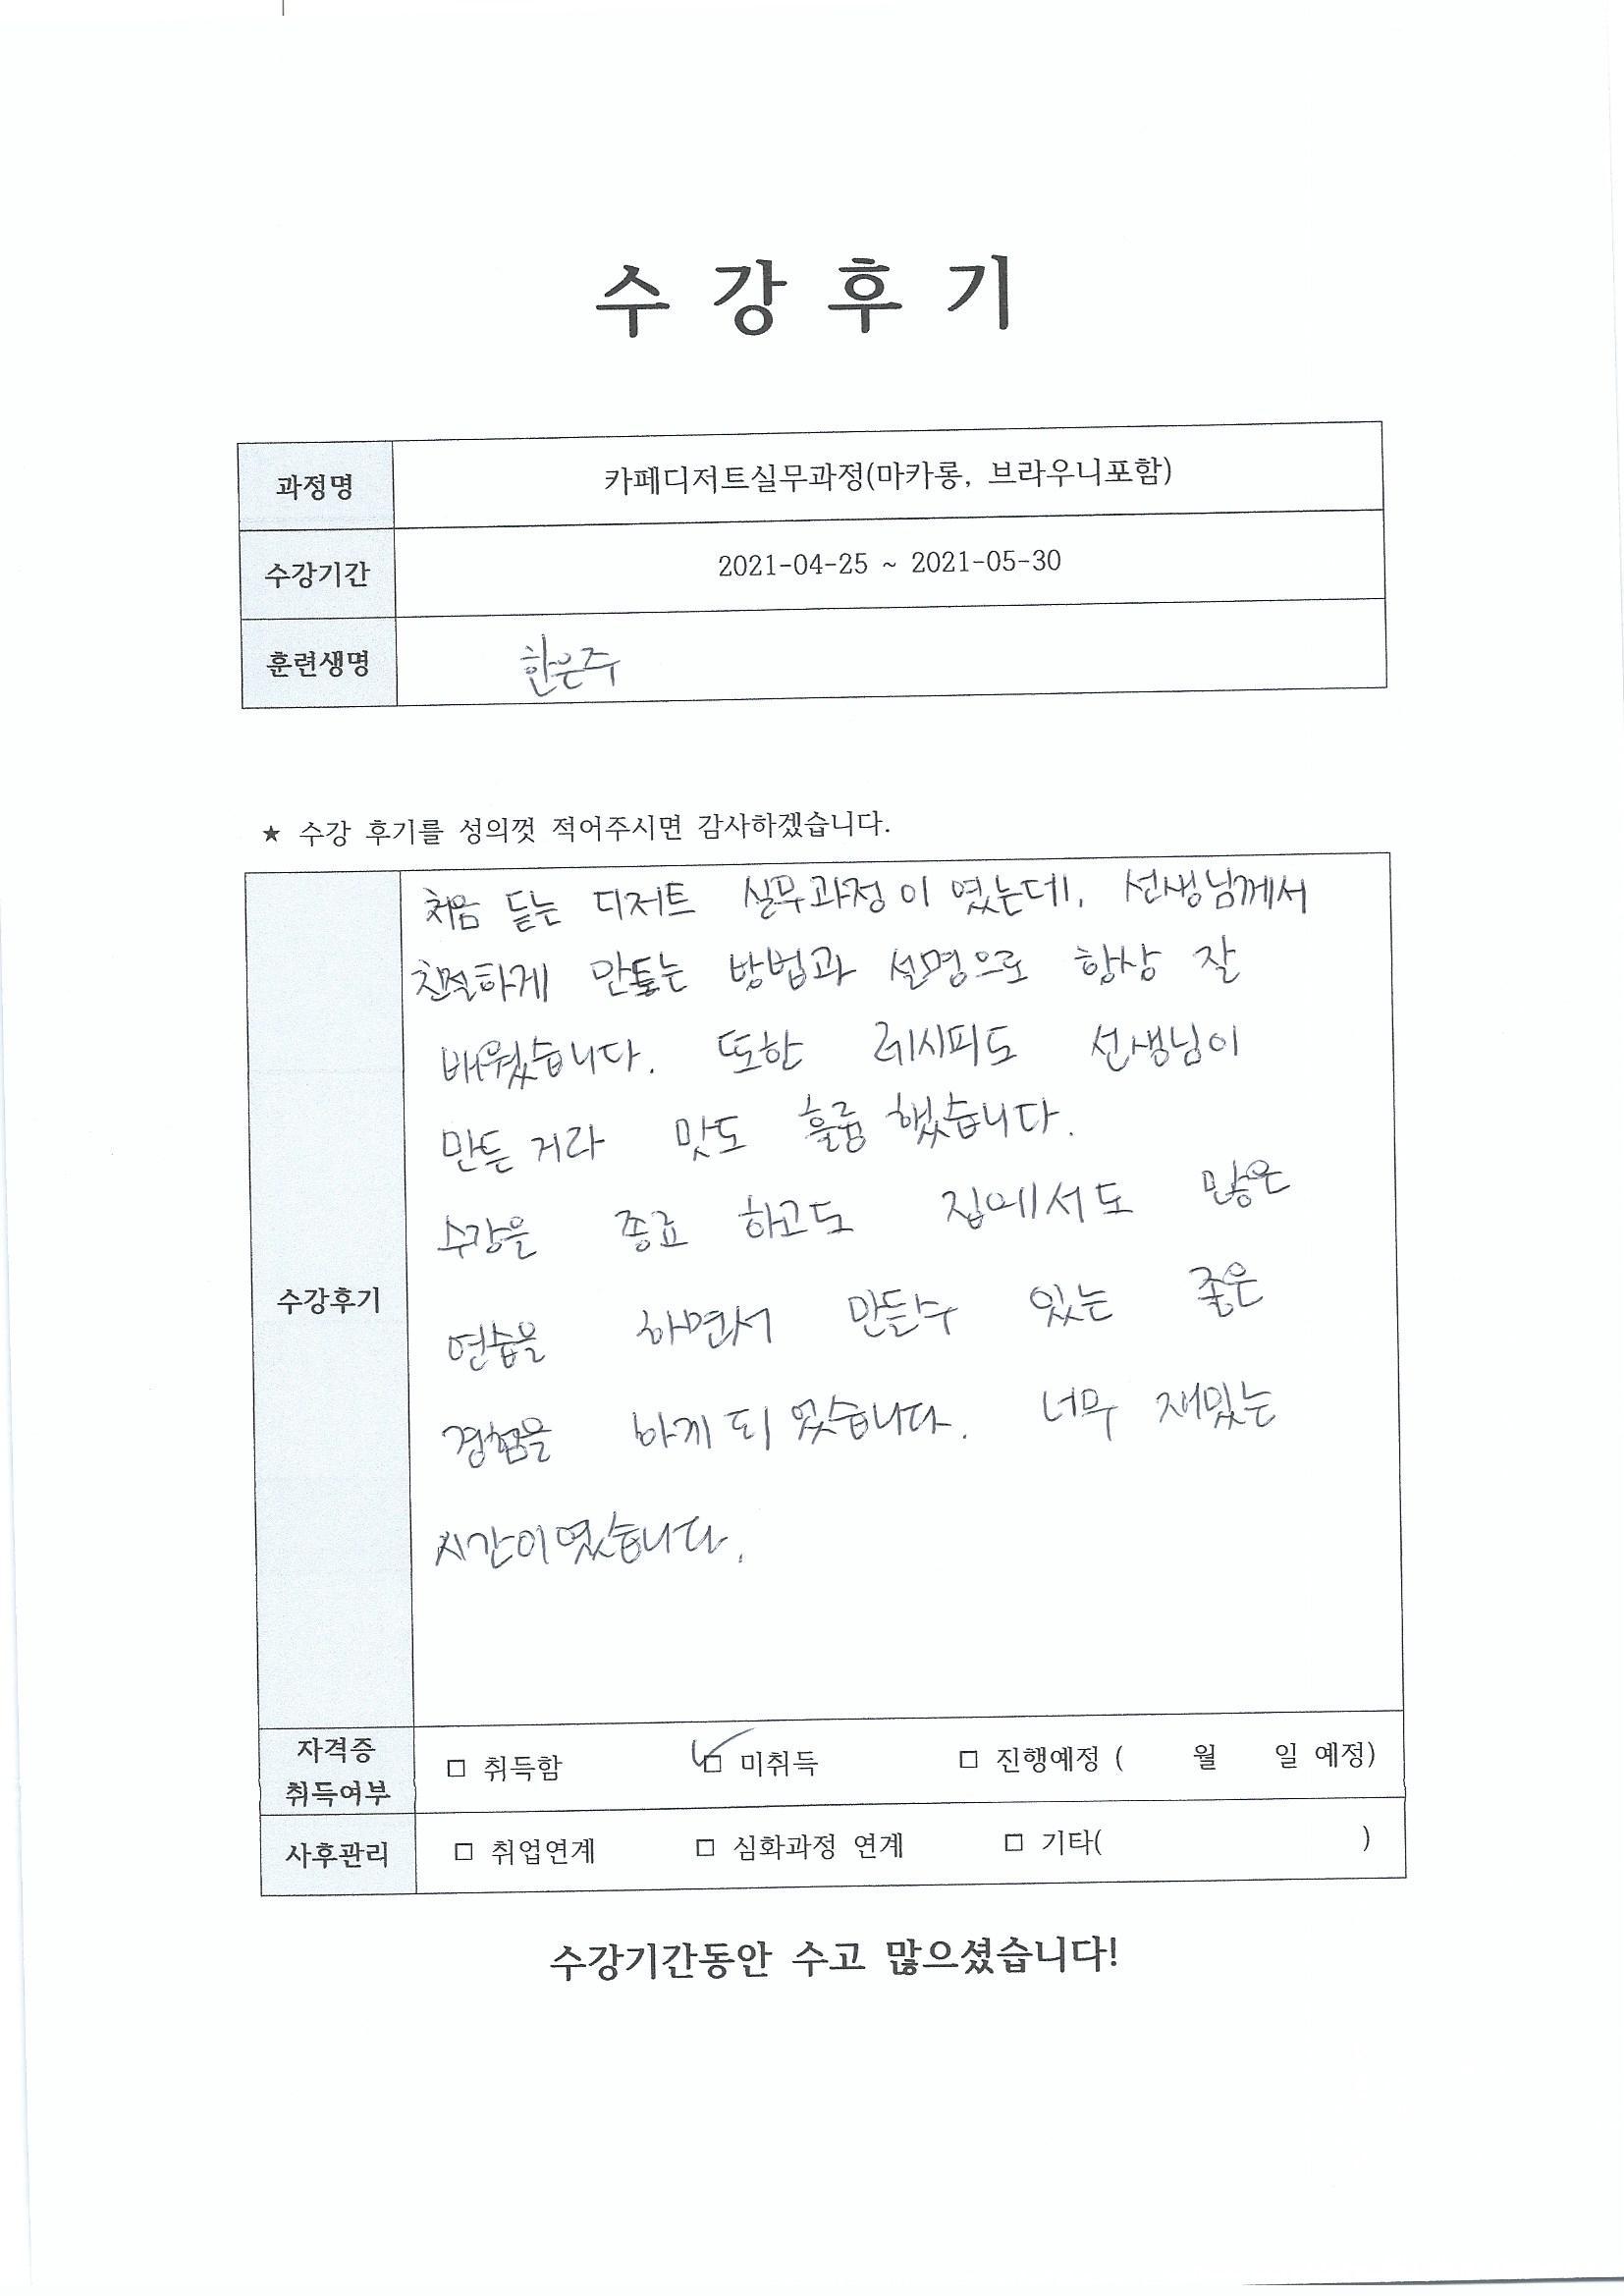 수 강 후 기
과정명 카페디저트실무과정(마카롱, 브라우니포함)
수강기간 2021-04-25 ~ 2021-05-30
훈련생명 한은주
★ 수강 후기를 성의껏 적어주시면 감사하겠습니다.
수강후기
처음 듣는 디저트 실무과정이 였는데, 선생님께서
친절하게 만듷는 방법과 설명으로 항상 잘
배웠습니다. 또한 레시피도 선생님이
만든 거라 맛도 흘륭했습니다.
수강을 종료 하고도 집에서도 많은
연습을 하면서 만들수 있는 좋은
경험을 하게 되 었습니다. 너무 재밌는
시간이였습니다.
자격증 취득여부 □ 취득함 □ 미취득 □ 진행예정 ( 월 일 예정)
사후관리 □ 취업연계 □ 심화과정 연계 □ 기타( )
수강기간동안 수고 많으셨습니다!